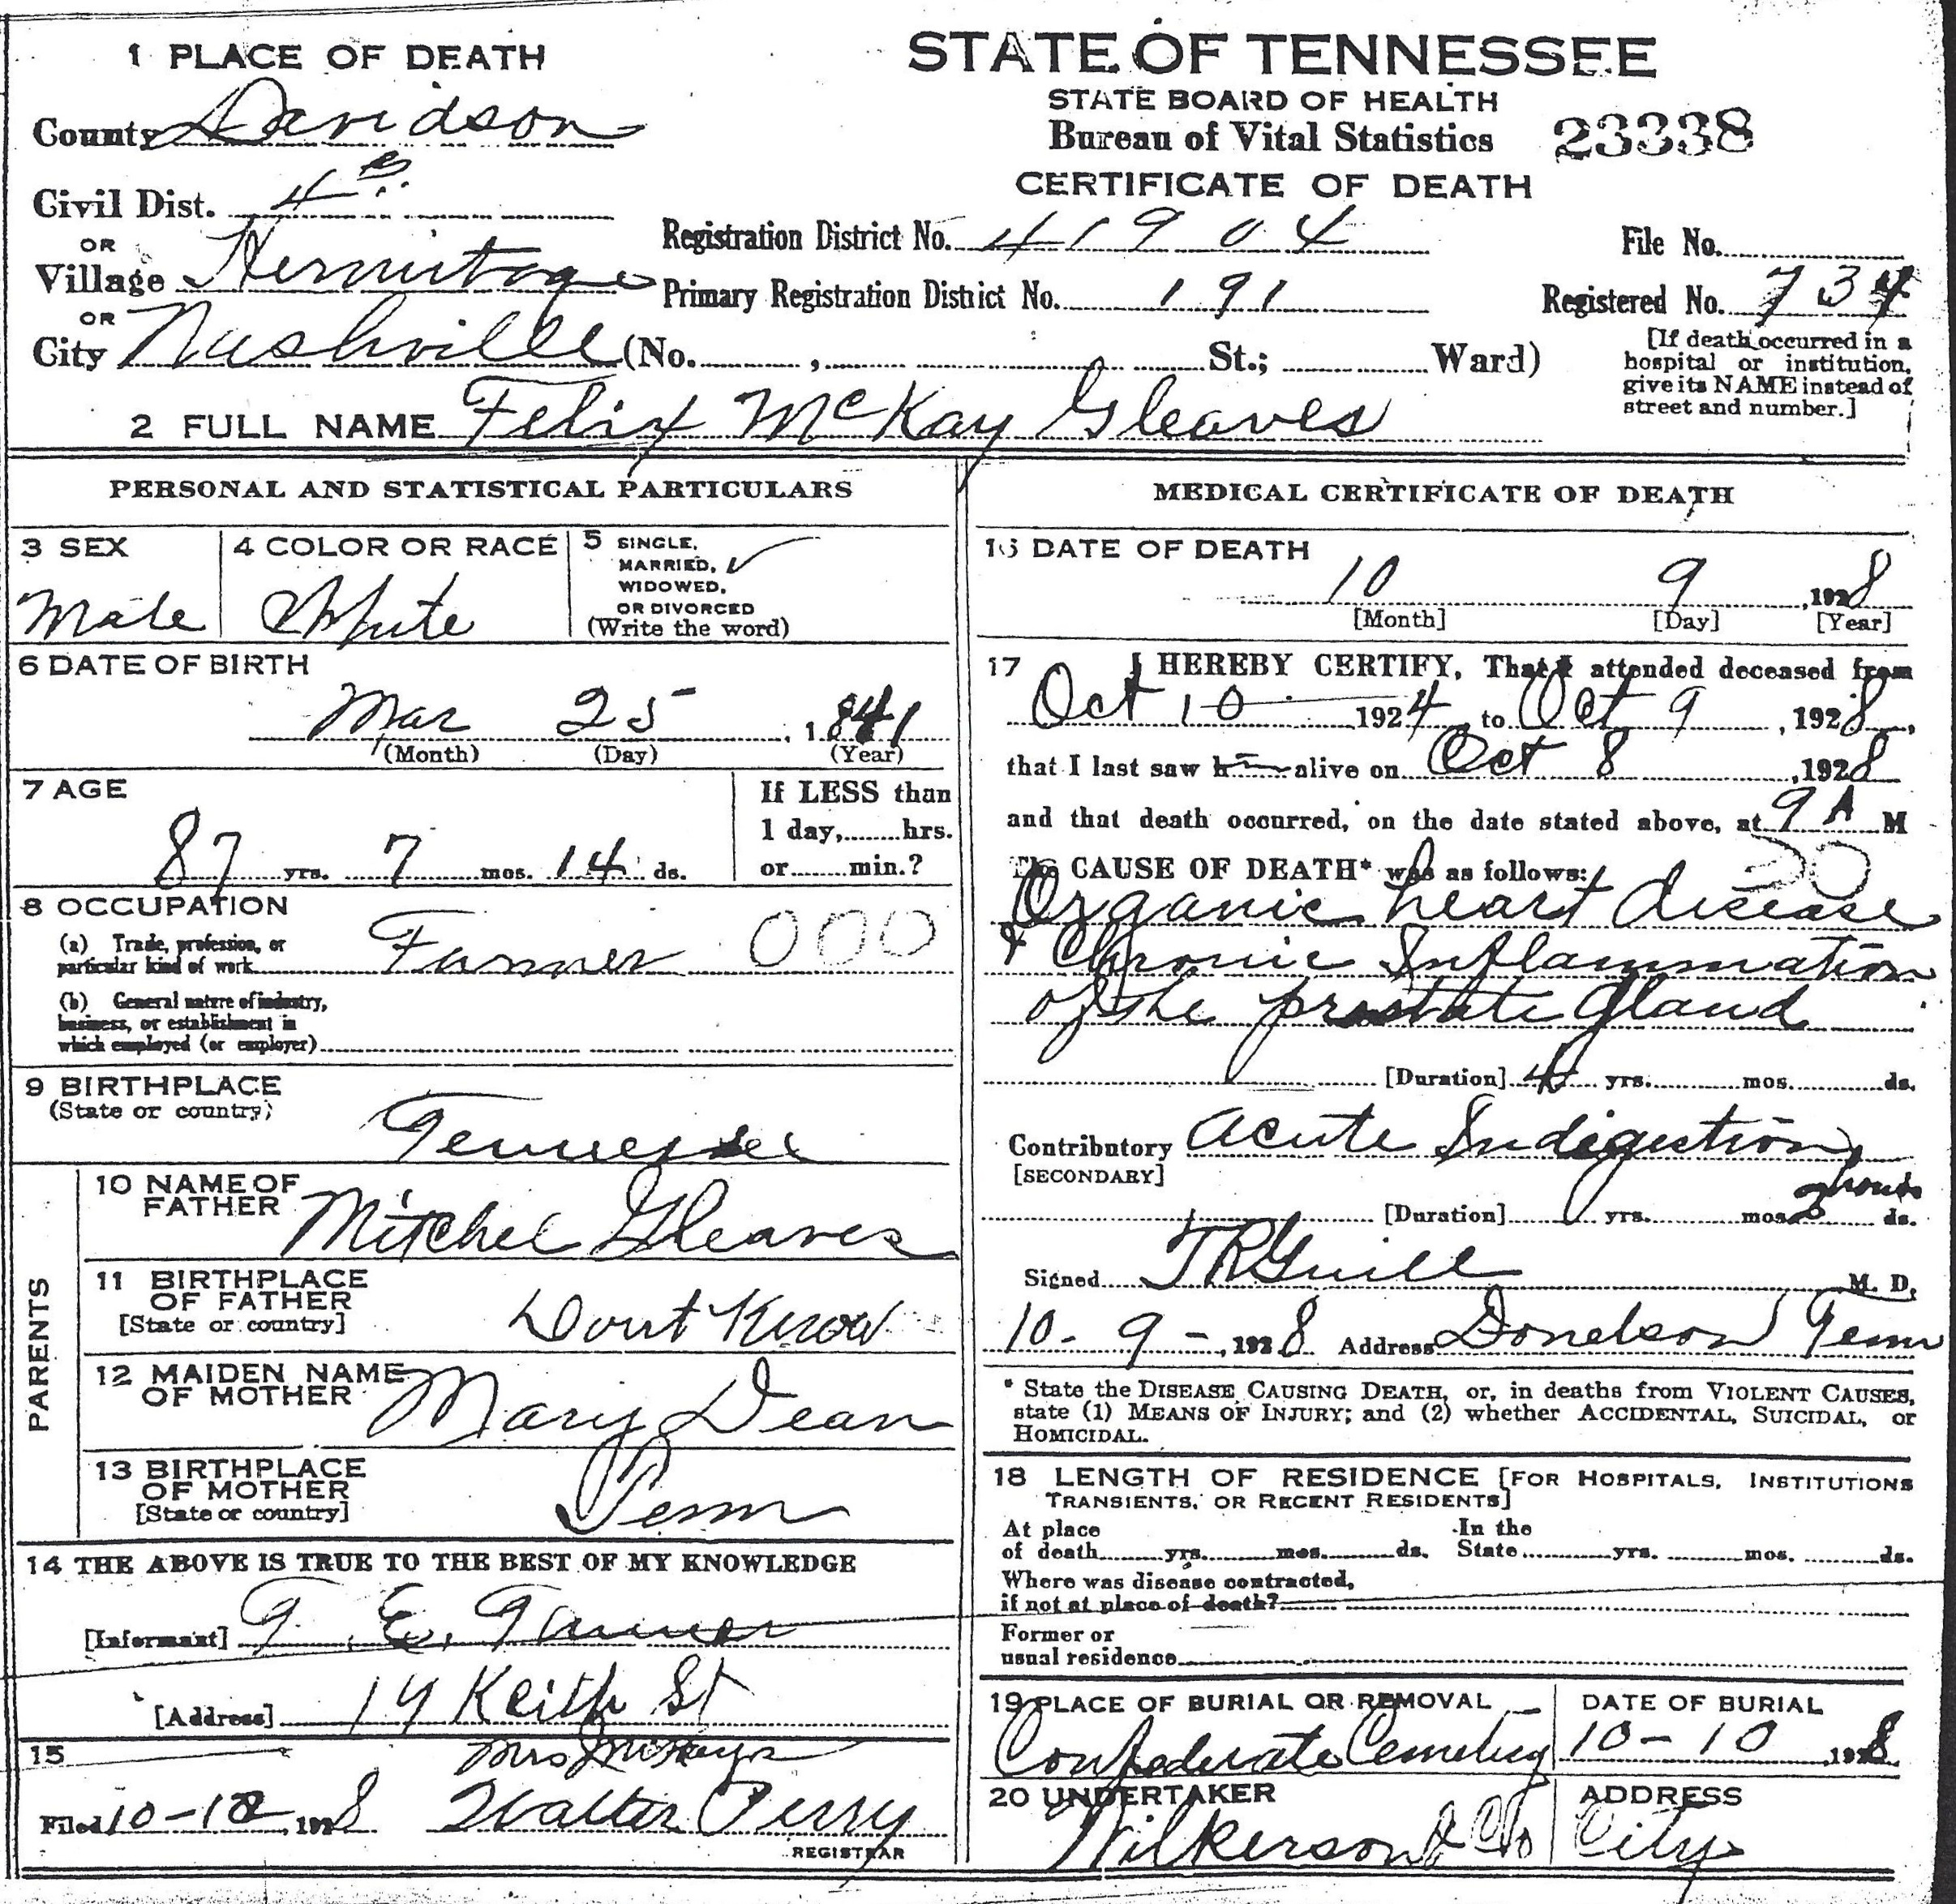 1 PLACE OF DEATH
County Davidson
Civil Dist. 4
OR
Village Hermitage
OR
City Nashville (No. , St.; Ward)
STATE OF TENNESSEE
STATE BOARD OF HEALTH
Bureau of Vital Statistics 23338
CERTIFICATE OF DEATH
Registration District No. 41904 File No.
Primary Registration District No. 191 Registered No. 734
[If death occurred in a
hospital or institution,
give its NAME instead of
street and number.]
2 FULL NAME Felix McKay Gleaves
PERSONAL AND STATISTICAL PARTICULARS
3 SEX
Male
4 COLOR OR RACE
White
5 SINGLE,
MARRIED, ✓
WIDOWED,
OR DIVORCED
(Write the word)
6 DATE OF BIRTH
Mar 25, 1841
(Month) (Day) (Year)
7 AGE
87 yrs. 7 mos. 14 ds.
If LESS than
1 day, hrs.
or min.?
8 OCCUPATION
(a) Trade, profession, or
particular kind of work Farmer 000
(b) General nature of industry,
business, or establishment in
which employed (or employer)
9 BIRTHPLACE
(State or country)
Tennessee
PARENTS
10 NAME OF
FATHER Mitchel Gleaves
11 BIRTHPLACE
OF FATHER
[State or country] Dont Know
12 MAIDEN NAME
OF MOTHER Mary Dean
13 BIRTHPLACE
OF MOTHER
[State or country] Tenn
14 THE ABOVE IS TRUE TO THE BEST OF MY KNOWLEDGE
[Informant] T. E. Tanner
[Address] 14 Keith St
15
Mrs
Filed 10-12, 1928 Walter Perry
REGISTRAR
MEDICAL CERTIFICATE OF DEATH
16 DATE OF DEATH
10 9, 1928
[Month] [Day] [Year]
17 I HEREBY CERTIFY, That I attended deceased from
Oct 10 1924, to Oct 9, 1928,
that I last saw him alive on Oct 8, 1928
and that death occurred, on the date stated above, at 9 A M
The CAUSE OF DEATH* was as follows:
Organic heart disease
& Chronic Inflammation
of the prostate gland
[Duration] 4 yrs. mos. ds.
Contributory acute Indigestion,
[SECONDARY]
[Duration] yrs. mos. 2 hours ds.
Signed TRGuill M. D.
10-9-, 1928 Address Donelson Tenn
* State the DISEASE CAUSING DEATH, or, in deaths from VIOLENT CAUSES,
state (1) MEANS OF INJURY; and (2) whether ACCIDENTAL, SUICIDAL, or
HOMICIDAL.
18 LENGTH OF RESIDENCE [FOR HOSPITALS, INSTITUTIONS
TRANSIENTS, OR RECENT RESIDENTS]
At place
of death yrs. mos. ds. In the
State yrs. mos. ds.
Where was disease contracted,
if not at place of death?
Former or
usual residence
19 PLACE OF BURIAL OR REMOVAL
Confederate Cemetery
DATE OF BURIAL
10-10 1928
20 UNDERTAKER
Wilkerson & Co
ADDRESS
City